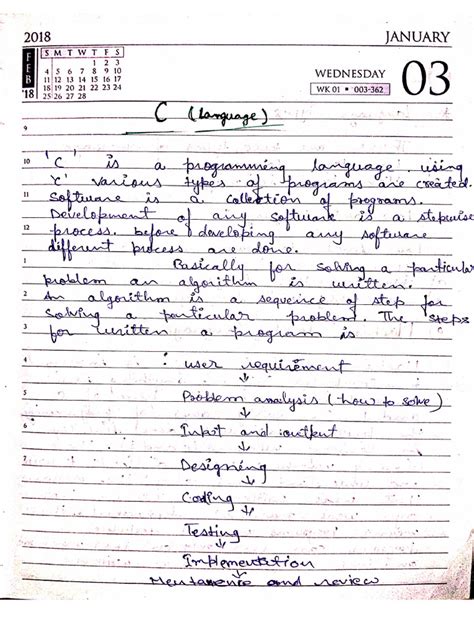 2018
JANUARY
FEB '18
S M T W T F S
1 2 3
4 5 6 7 8 9 10
11 12 13 14 15 16 17
18 19 20 21 22 23 24
25 26 27 28
WEDNESDAY
03
WK 01 • 003-362
C (Language)
9
10 'C' is a programming language. using
'C' various types of programs are created.
11 Software is a collection of programs.
Development of any software is a stepwise
12 process. before developing any software
different process are done.
1 Basically for solving a particular
problem an algorithm is written.
2 An algorithm is a sequence of step for
solving a particular problem. The steps
3 for written a program is
4 user requirement
↓
5 Problem analysis (how to solve)
↓
6 Input and output
↓
7 Designing
↓
Coding
↓
Testing
↓
Implementation
↓
and review